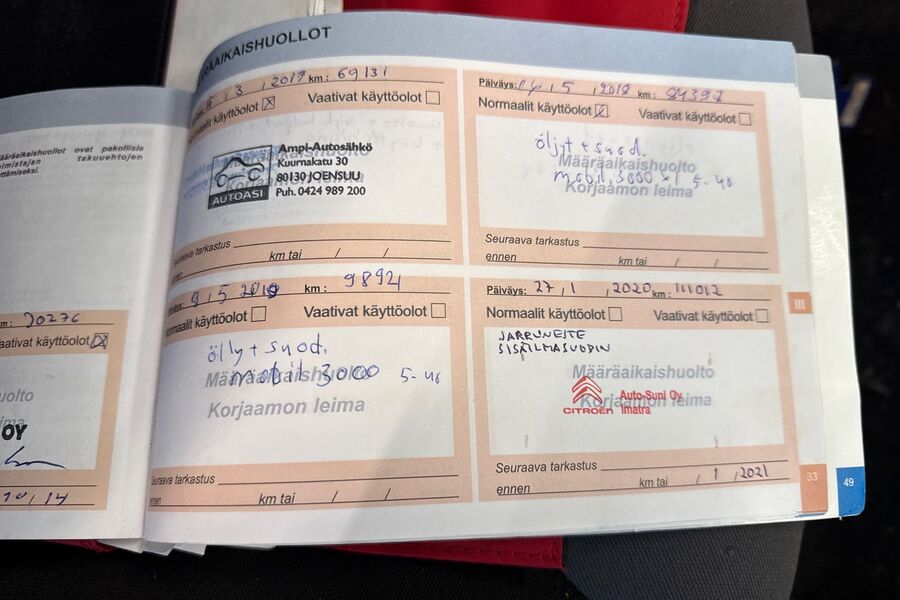 MÄÄRÄAIKAISHUOLLOT
ääräaikaishuollot ovat pakollisia
almistajan takuuehtojen
yttämiseksi.
m: 20276
aativat käyttöolot
uolto
ma
OY
3, 2017 km: 69131
Normaalit käyttöolot Vaativat käyttöolot
Ampi-Autosähkö
Kuurnakatu 30
80130 JOENSUU
Puh. 0424 989 200
AUTOASI
Seuraava tarkastus
ennen km tai / /
Päiväys: 14, 5, 2018 km: 84397
Normaalit käyttöolot Vaativat käyttöolot
öljyt + suod.
Määräaikaishuolto
mobil, 3000 x1 5-40
Korjaamon leima
Seuraava tarkastus
ennen km tai / /
9, 5 2019 km: 98921
Normaalit käyttöolot Vaativat käyttöolot
ölly + suod.
Määräaikaishuolto
mobil 3000 5-40
Korjaamon leima
Seuraava tarkastus
ennen km tai / /
Päiväys: 27, 1, 2020 km: 111012
Normaalit käyttöolot Vaativat käyttöolot
JARRUNESTE
SISÄILMASUODIN
Määräaikaishuolto
Korjaamon leima
CITROËN Auto-Suni Oy
Imatra
Seuraava tarkastus
ennen km tai , 1, 2021
III
33
49